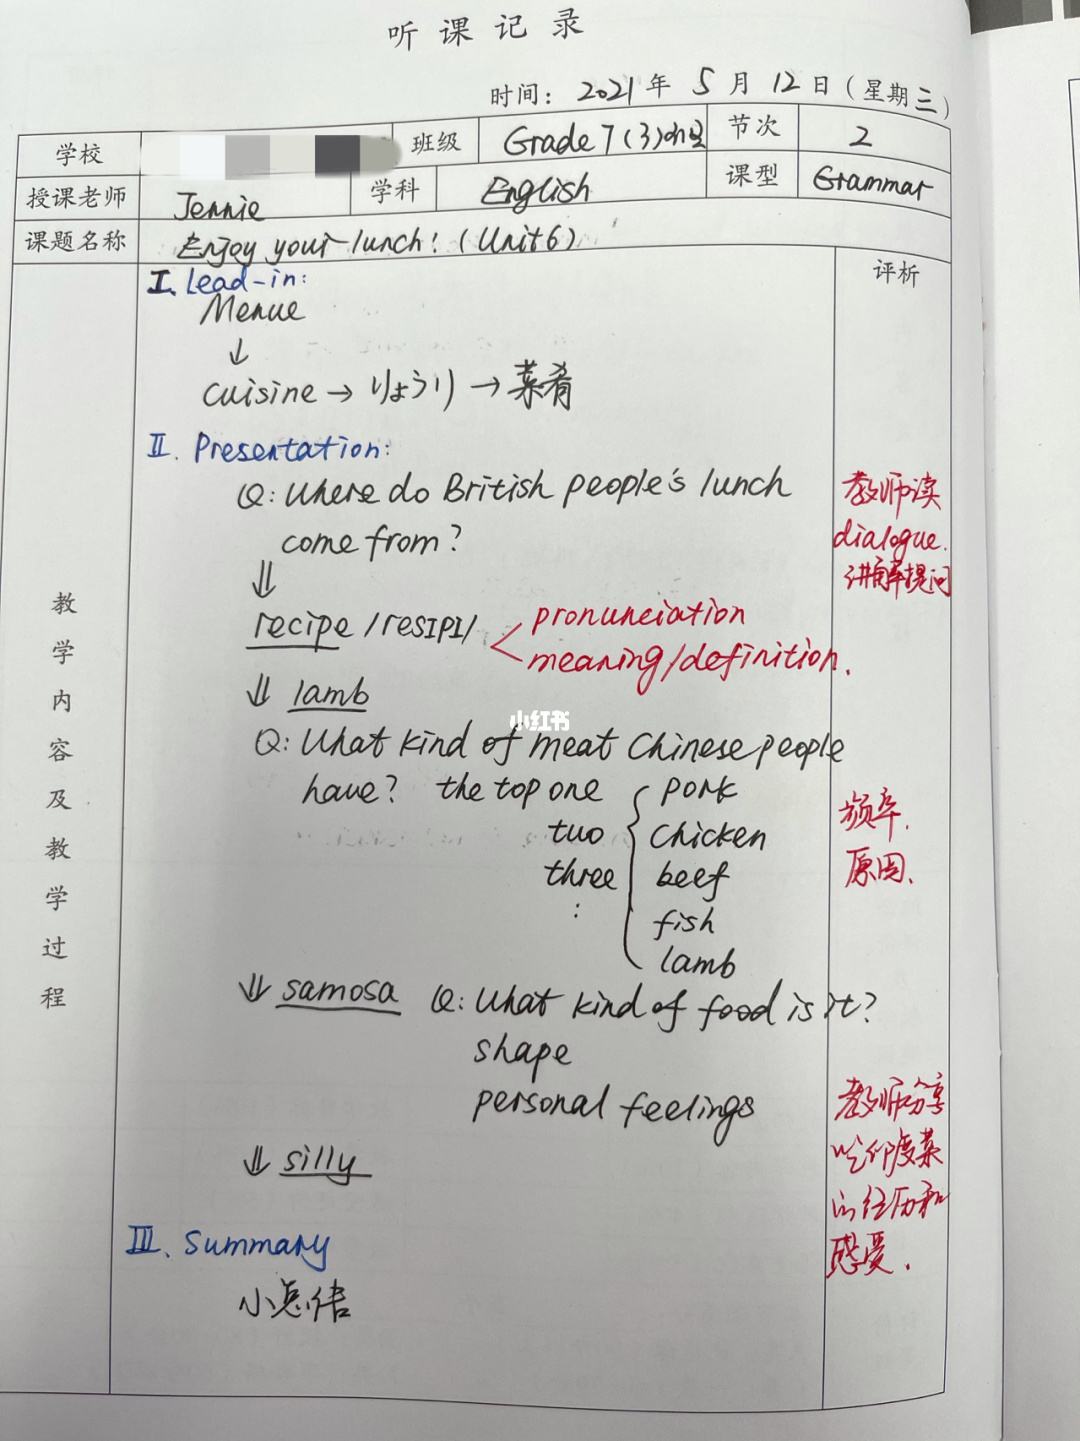 听课记录
时间： 2021年 5月 12日（星期三）
学校 班级 Grade 7 (3) 节次 2
授课老师 Jennie 学科 English 课型 Grammar
课题名称 Enjoy your lunch! (Unit 6)
教学内容及教学过程
评析
I. Lead-in:
Menue
↓
cuisine → りょうり → 菜肴
II. Presentation:
Q: Where do British people's lunch
come from?
⇓
recipe /resIPI/ < pronunciation
meaning/definition.
⇓ lamb
Q: What kind of meat Chinese people
have? the top one { pork
two chicken
three beef
: fish
lamb
⇓ samosa Q: What kind of food is it?
shape
personal feelings
⇓ silly
III. Summary
小总结
教师读
dialogue.
讲解提问
频率.
原因.
教师分享
吃印度菜
的经历和
感受.
小红书